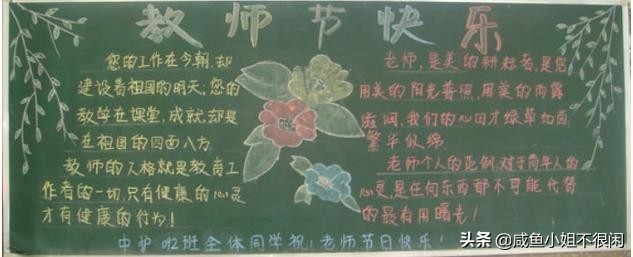 教师节快乐
您的工作在今朝,却
建设着祖国的明天;您的
教学在课堂,成就却是
在祖国的四面八方。
教师的人格就是教育工
作者的一切,只有健康的心灵
才有健康的行为!
老师,是美的耕耘者,是您
用美的阳光普照,用美的雨露
滋润,我们的心田才绿草如茵,
繁华似锦
老师个人的范例,对于青年人的
心灵,是任何东西都不可能代替
的最有用曙光!
班全体同学祝:老师节日快乐!
头条 @咸鱼小姐不很闲